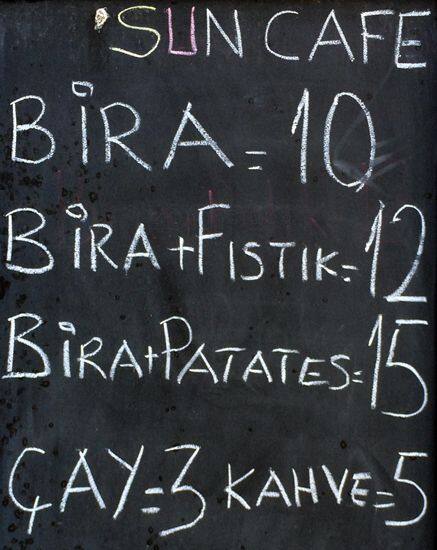 SUN CAFE
BİRA = 10
BİRA+FISTIK=12
BİRA+PATATES=15
ÇAY=3 KAHVE=5